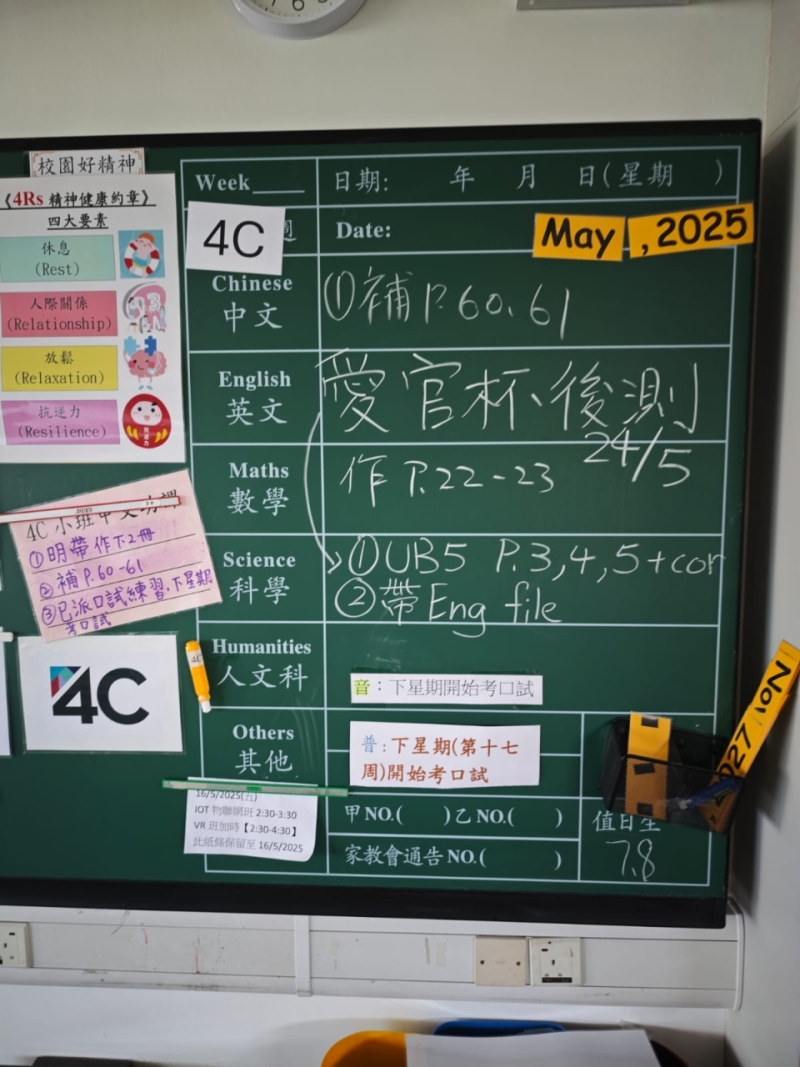 校園好精神
《4Rs 精神健康約章》
四大要素
休息
(Rest)
人際關係
(Relationship)
放鬆
(Relaxation)
抗逆力
(Resilience)
Week____
日期: 年 月 日(星期 )
4C
週
Date:
May , 2025
Chinese
中文
①補 P.60、61
English
英文
愛官杯、後測
24/5
Maths
數學
作 P.22-23
Science
科學
①UB5 P.3,4,5+cor
②帶 Eng file
Humanities
人文科
音：下星期開始考口試
Others
其他
普：下星期(第十七
周)開始考口試
甲NO.( )乙NO.( )
家教會通告NO.( )
值日生
7.8
4C 小班中文功課
①明帶作下2冊
②補 P.60-61
③已派口試練習、下星期
考口試
4C
4C
16/5/2025(五)
IOT 物聯網班 2:30-3:30
VR 班加時【2:30-4:30】
此紙條保留至 16/5/2025
Nov